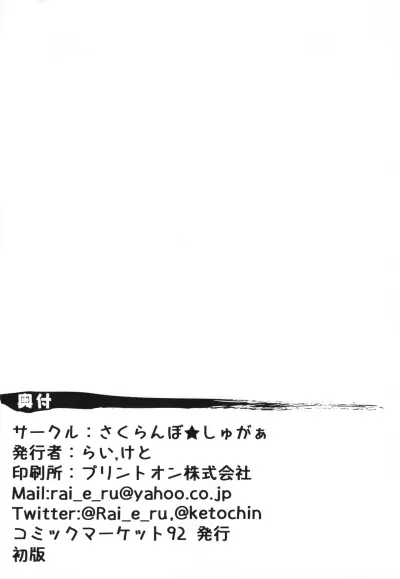 奥付
サークル：さくらんぼ★しゅがぁ
発行者：らい,けと
印刷所：プリントオン株式会社
Mail:rai_e_ru@yahoo.co.jp
Twitter:@Rai_e_ru,@ketochin
コミックマーケット92 発行
初版